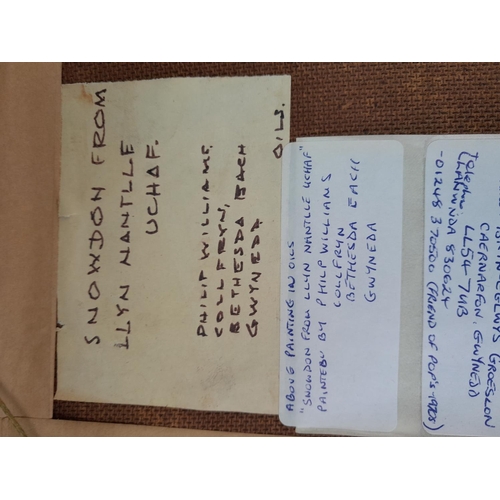 SNOWDON FROM
LLYN NANTLLE
UCHAF.
PHILIP WILLIAMS,
COLL FRYN,
BETHESDA BACH
GWYNEDD
OILS.
ABOVE PAINTING IN OILS
"SNOWDON FROM LLYN NANTLLE UCHAF"
PAINTED BY PHILP WILLIAMS
COLLFRYN
BETHESDA BACH
GWYNEDA
GROESLON
CAERNARFON, GWYNEDD
LL54 7UB
Telephone LLANWNDA 830624
-01248 370500 (FRIEND OF POP'S